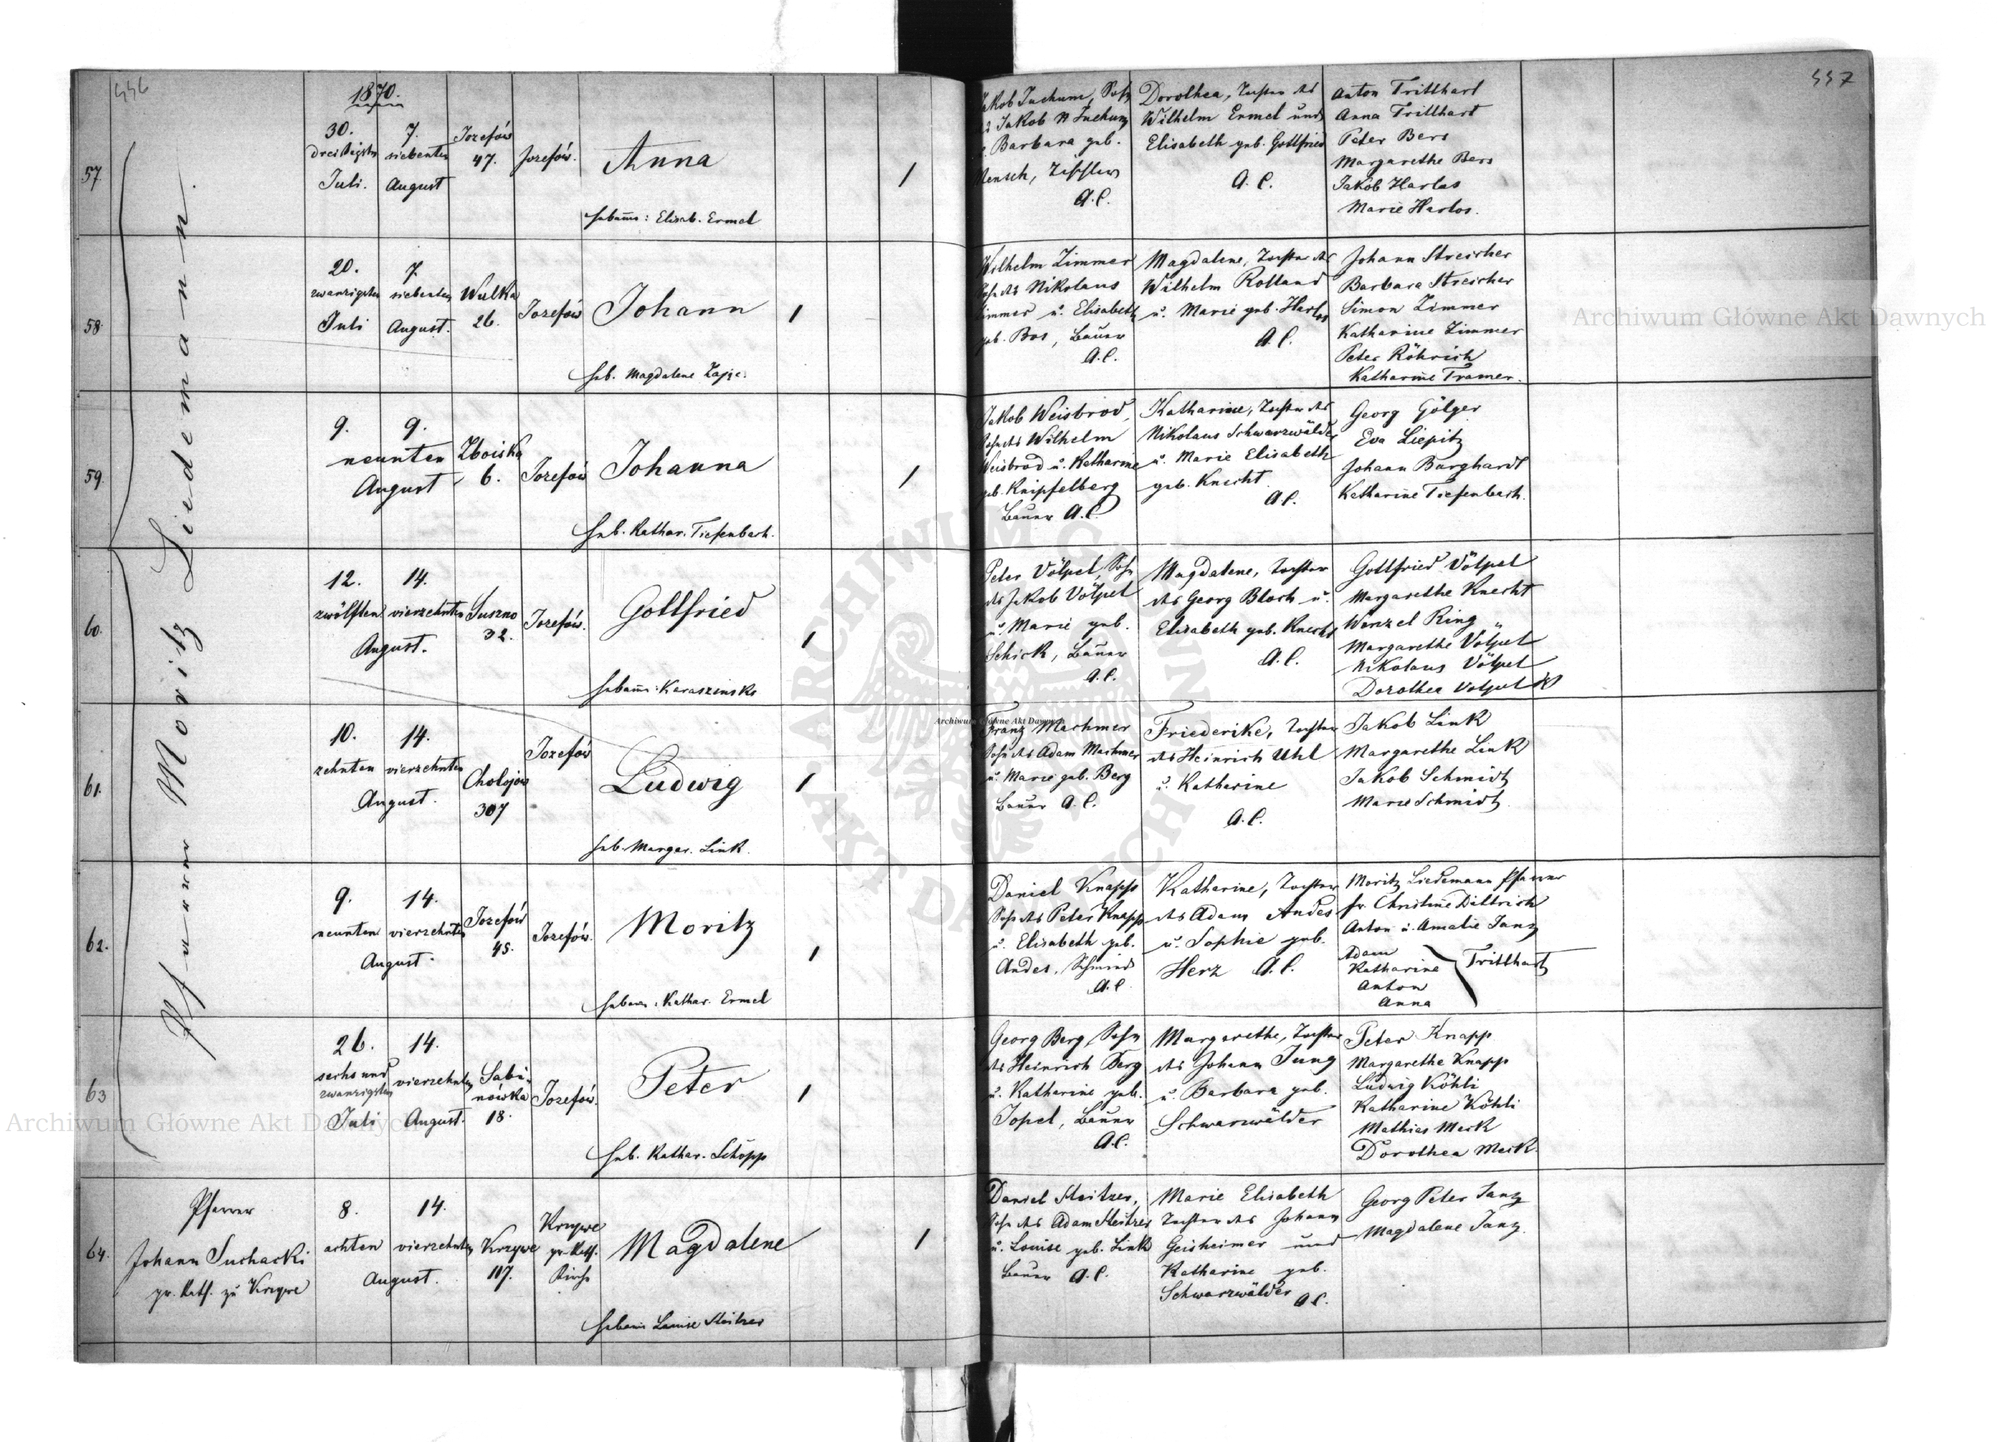 446
1870.
57
Pfarrer Moritz Liedemann.
30.
dreißigsten
Juli.
7.
siebenten
August
Jozefów
47.
Jozefów.
Anna
Hebame: Elisab. Ermel
58
20.
zwanzigsten
Juli
7.
siebenten
August.
Wulka
26.
Jozefów
Johann
Heb. Magdalene
59
9.
9.
neunten
August
Zboiska
6.
Jozefów
Johanna
Heb. Kathar. Tiefenbach.
60.
12.
14.
zwölften
vierzehnten
August.
Suszno
32.
Jozefów.
Gottfried
Hebam: Karaszinska
61.
10.
14.
zehnten
vierzehnten
August.
Cholojow
307
Jozefów
Ludwig
Heb. Margar. Link.
62.
9.
14.
neunten
vierzehnten
August.
Jozefów
45.
Jozefów.
Moritz
Hebam: Kathar. Ermel
63
26.
14.
sechs und
zwanzigsten
Juli
vierzehnten
August.
Sabi-
nówka
18.
Jozefów.
Peter
Heb. Kathar. Schöpp
64.
Pfarrer
Johann Suchacki
gr. Kath. zu Krzywe
8.
14.
achten
vierzehnten
August.
Krzywe
117.
Krzywe
gr. Kath.
Kirche
Magdalene
Hebam Louise Steitzer
447
Jakob Juchum, Sohn
Jakob Juchum
Barbara geb.
Mensch, Tischler
A.C.
Dorothea, Tochter des
Wilhelm Ermel und
Elisabeth geb. Gottfried
A.C.
Anton Tritthart
Anna Tritthart
Peter Bers
Margarethe Bers
Jakob Harlos
Marie Harlos.
Wilhelm Zimmer
Sohn des Nikolaus
Zimmer u. Elisabeth
geb. Bos, Bauer
A.C.
Magdalene, Tochter des
Wilhelm Rolland
u. Marie geb. Harlos
A.C.
Johann Streicher
Barbara Streicher
Simon Zimmer
Katharine Zimmer
Peter Röhrich
Katharine Tramer.
Jakob Weisbrod,
Sohn des Wilhelm
Weisbrod u. Katharine
geb. Knipfelberg
Bauer A.C.
Katharine, Tochter des
Nikolaus Schwarzwälder
u. Marie Elisabeth
geb. Knecht.
A.C.
Georg Gölger
Eva Liepitz
Johann Burghardt
Katharine Tiefenbach.
Peter Völpel, Sohn
des Jakob Völpel
u. Marie geb.
Schick, Bauer
A.C.
Magdalene, Tochter
des Georg Bloch u.
Elisabeth geb. Knecht
A.C.
Gottfried Völpel
Margarethe Knecht
Wenzel Ring
Margarethe Völpel
Nikolaus Völpel
Dorothea Völpel
Franz Machmer
Sohn des Adam Machmer
u. Marie geb. Berg
Bauer A.C.
Friederike, Tochter
des Heinrich Uhl
u. Katherine
A.C.
Jakob Link
Margarethe Link
Jakob Schmidt
Marie Schmidt.
Daniel Knapp
Sohn des Peter Knapp
u. Elisabeth geb.
Andes, Schmied
A.C.
Katharine, Tochter
des Adam Andes
u. Sophie geb.
Herz A.C.
Moritz Liedemann Pfarrer
fr. Christine Dittrich
Anton u. Amalie Janz
Adam
Katharine
Anton
Anna
Tritthart
Georg Berg, Sohn
des Heinrich Berg
u. Katharine geb.
Jopel, Bauer
A.C.
Margarethe, Tochter
des Johann Jung
u. Barbara geb.
Schwarzwälder
Peter Knapp
Margarethe Knapp
Ludwig Köhli
Katharine Köhli
Mathias Merk
Dorothea Merk.
Daniel Steitzer,
Sohn des Adam Steitzer
u. Louise geb. Link
Bauer A.C.
Marie Elisabeth
Tochter des Johann
Geisheimer und
Katharine geb.
Schwarzwälder
A.C.
Georg Peter Janz
Magdalene Janz.
Archiwum Główne Akt Dawnych
Archiwum Główne Akt Dawnych
Archiwum Główne Akt Dawnych